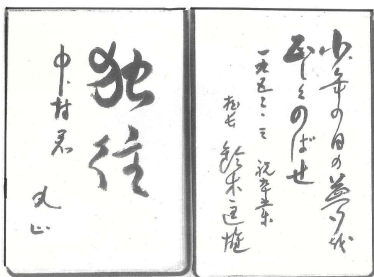 少年の日の夢を
正しくのばせ
一九五三・三 祝卒業
校長 鈴木
独往
中村君